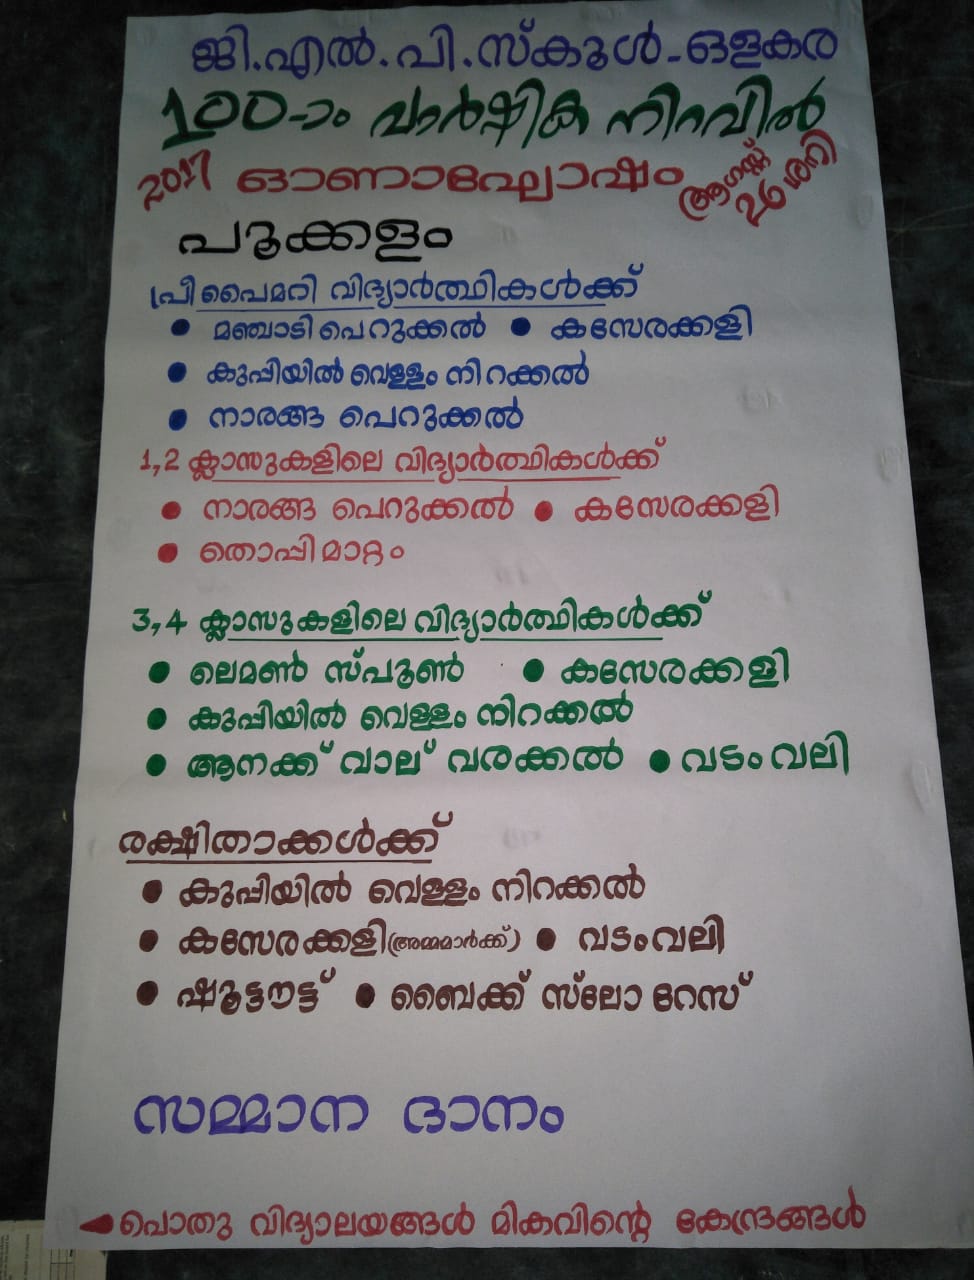 ജി.എൽ.പി.സ്കൂൾ-ഒളകര
100-ാം വാർഷിക നിറവിൽ
2017 ഓണാഘോഷം ആഗസ്റ്റ് 26 ശനി
പൂക്കളം
പ്രീപൈമറി വിദ്യാർത്ഥികൾക്ക്
● മഞ്ചാടി പെറുക്കൽ ● കസേരക്കളി
● കുപ്പിയിൽ വെള്ളം നിറക്കൽ
● നാരങ്ങ പെറുക്കൽ
1,2 ക്ലാസുകളിലെ വിദ്യാർത്ഥികൾക്ക്
● നാരങ്ങ പെറുക്കൽ ● കസേരക്കളി
● തൊപ്പി മാറ്റം
3,4 ക്ലാസുകളിലെ വിദ്യാർത്ഥികൾക്ക്
● ലെമൺ സ്പൂൺ ● കസേരക്കളി
● കുപ്പിയിൽ വെള്ളം നിറക്കൽ
● ആനക്ക് വാല് വരക്കൽ ● വടംവലി
രക്ഷിതാക്കൾക്ക്
● കുപ്പിയിൽ വെള്ളം നിറക്കൽ
● കസേരക്കളി (അമ്മമാർക്ക്) ● വടംവലി
● ഷൂട്ടൗട്ട് ● ബൈക്ക് സ്ലോ റേസ്
സമ്മാന ദാനം
പൊതു വിദ്യാലയങ്ങൾ മികവിന്റെ കേന്ദ്രങ്ങൾ